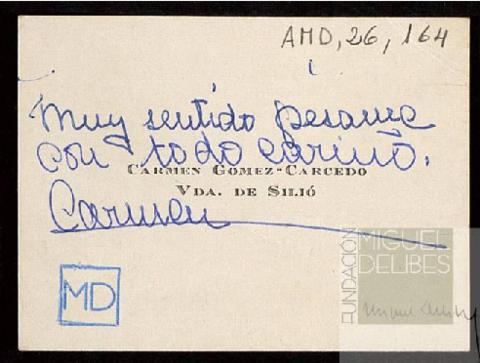 AMD, 26, 164
Muy sentido pesame
con todo cariño.
CARMEN GOMEZ-CARCEDO
VDA. DE SILIÓ
Carmen
MD
FUNDACIÓN
MIGUEL
DELIBES